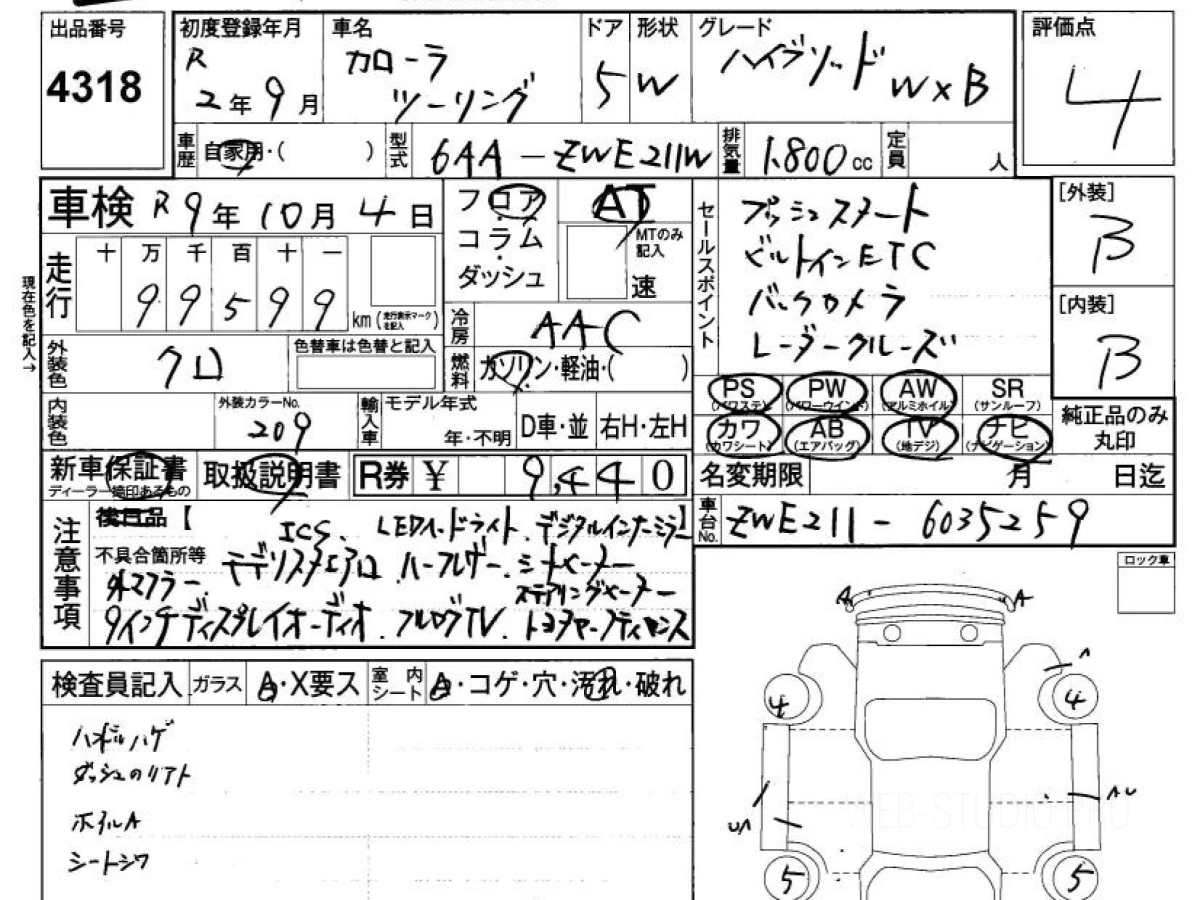 出品番号
4318
初度登録年月
R
2年9月
車名
カローラ
ツーリング
ドア
5
形状
W
グレード
ハイブリッド W×B
評価点
4
車歴
自家用・( )
型式
6AA-ZWE211W
排気量
1.800cc
定員
人
車検 R9年10月4日
フロア
・
コラム
・
ダッシュ
AT
MTのみ記入
速
現在色を記入→
走行
十 万 千 百 十 一
9 9 5 9 9
km (走行表示マークを記入)
冷房
AAC
外装色
クロ
色替車は色替と記入
燃料
ガソリン・軽油・( )
内装色
外装カラーNo.
209
輸入車
モデル年式
年・不明
D車・並
右H・左H
セールスポイント
プッシュスタート
ビルトインETC
バックカメラ
レーダークルーズ
[外装]
B
[内装]
B
PS (パワステ)
PW (パワーウインド)
AW (アルミホイル)
SR (サンルーフ)
カワ (カワシート)
AB (エアバッグ)
TV (地デジ)
ナビ (ナビゲーション)
純正品のみ
丸印
新車保証書
ディーラー捺印あるもの
取扱説明書
R券 ¥ 9,440
名変期限 月 日迄
車台No.
ZWE211-6035259
注意事項
後日品【 】
ICS. LEDヘッドライト. デジタルインナーミラー
不具合箇所等
モデリスタエアロ. ハーフレザー. シートヒーター
外マフラー. ステアリングヒーター
9インチディスプレイオーディオ. フルセグTV.
ロック車
検査員記入
ガラス
A・X要ス
室内シート
A・コゲ・穴・汚れ・破れ
ハンドルハゲ
ダッシュのリアト
ホイルA
シートシワ
A
A
A
4
4
AU
UA
5
5
WEB-STUDIO.PRO